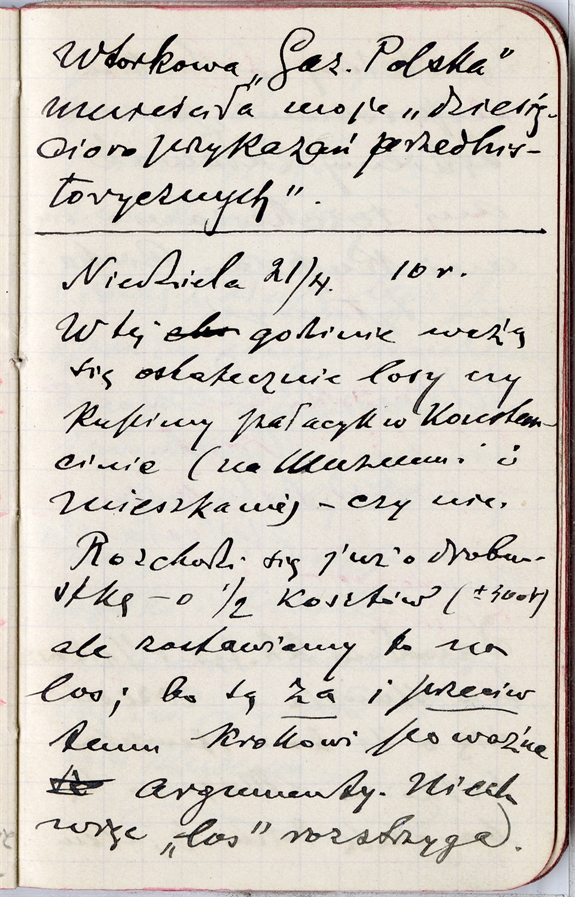 Wtorkowa „Gaz. Polska"
umieściła moje „dziesię-
cioro przykazań przedhis-
torycznych".
Niedziela 21/4. 10 r.
W tej godzinie ważą
się ostatecznie losy czy
kupimy pałacyk w Konstan-
cinie (na Muzeum i
mieszkanie) – czy nie.
Rozchodzi się już o drobno-
stkę – o 1/2 kosztów
ale zostawiamy to na
los; bo są za i przeciw
temu krokowi poważne
argumenty. Niech
więc „los" rozstrzyga.